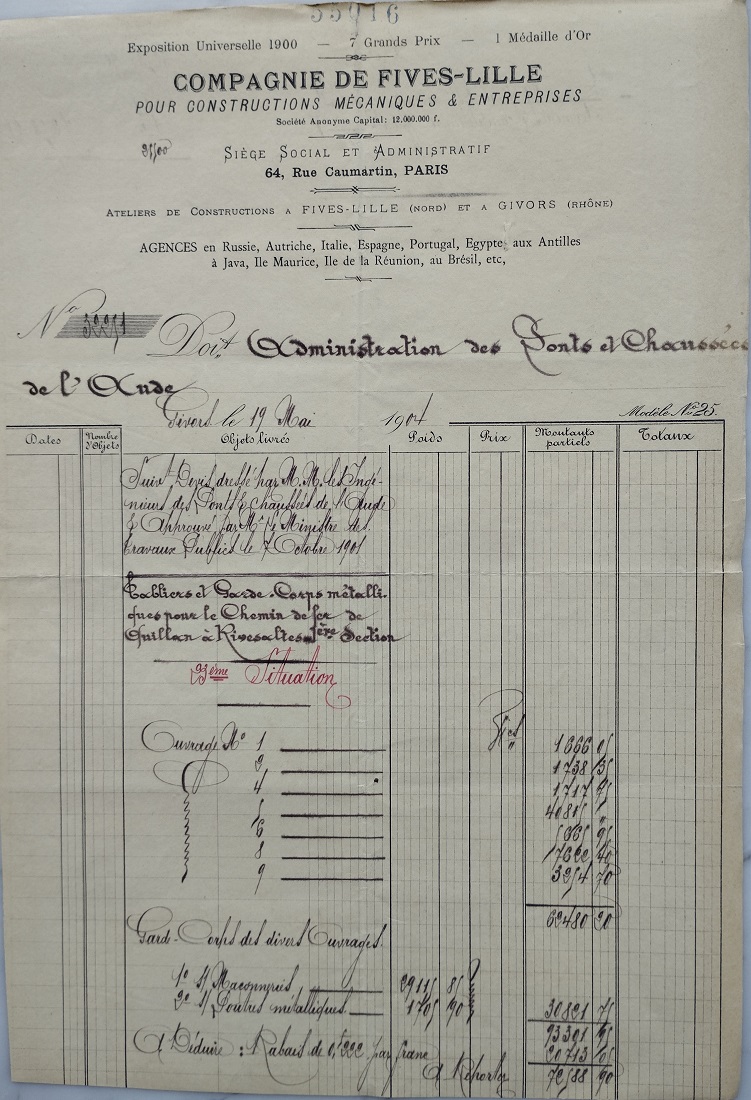 Exposition Universelle 1900 — 7 Grands Prix — 1 Médaille d'Or
COMPAGNIE DE FIVES-LILLE
POUR CONSTRUCTIONS MÉCANIQUES & ENTREPRISES
Société Anonyme Capital: 12.000.000 f.
SIÈGE SOCIAL ET ADMINISTRATIF
64, Rue Caumartin, PARIS
ATELIERS DE CONSTRUCTIONS A FIVES-LILLE (NORD) ET A GIVORS (RHÔNE)
AGENCES en Russie, Autriche, Italie, Espagne, Portugal, Egypte, aux Antilles
à Java, Ile Maurice, Ile de la Réunion, au Brésil, etc,
No
Doit Administration des Ponts et Chaussées
de l'Aude
Givors le 19 Mai 1904
Modèle No 25.
Dates Nombre d'Objets Objets livrés Poids Prix Montants partiels Totaux
Suivt Devis dressé par M.M. les Ingé-
nieurs des Ponts & chaussées de l'Aude
& Approuvé par Mr le Ministre des
travaux Publics le 7 Octobre 1901
Tabliers et Garde-Corps métalli-
ques pour le Chemin de fer de
Quillan à Rivesaltes 1ère Section
23ème Situation
Ouvrage No 1 1666 05
2 " 1738 35
4 1717 75
5 40815 "
6 5665 95
8 7622 40
9 3254 70
62480 20
Garde-Corps des divers Ouvrages.
1o s/ Maçonneries 29115 85
2o s/ Poutres métalliques 1705 90 30821 75
93301 95
A Déduire : Rabais de 0f 222 par franc 20713 05
A Reporter 72588 90